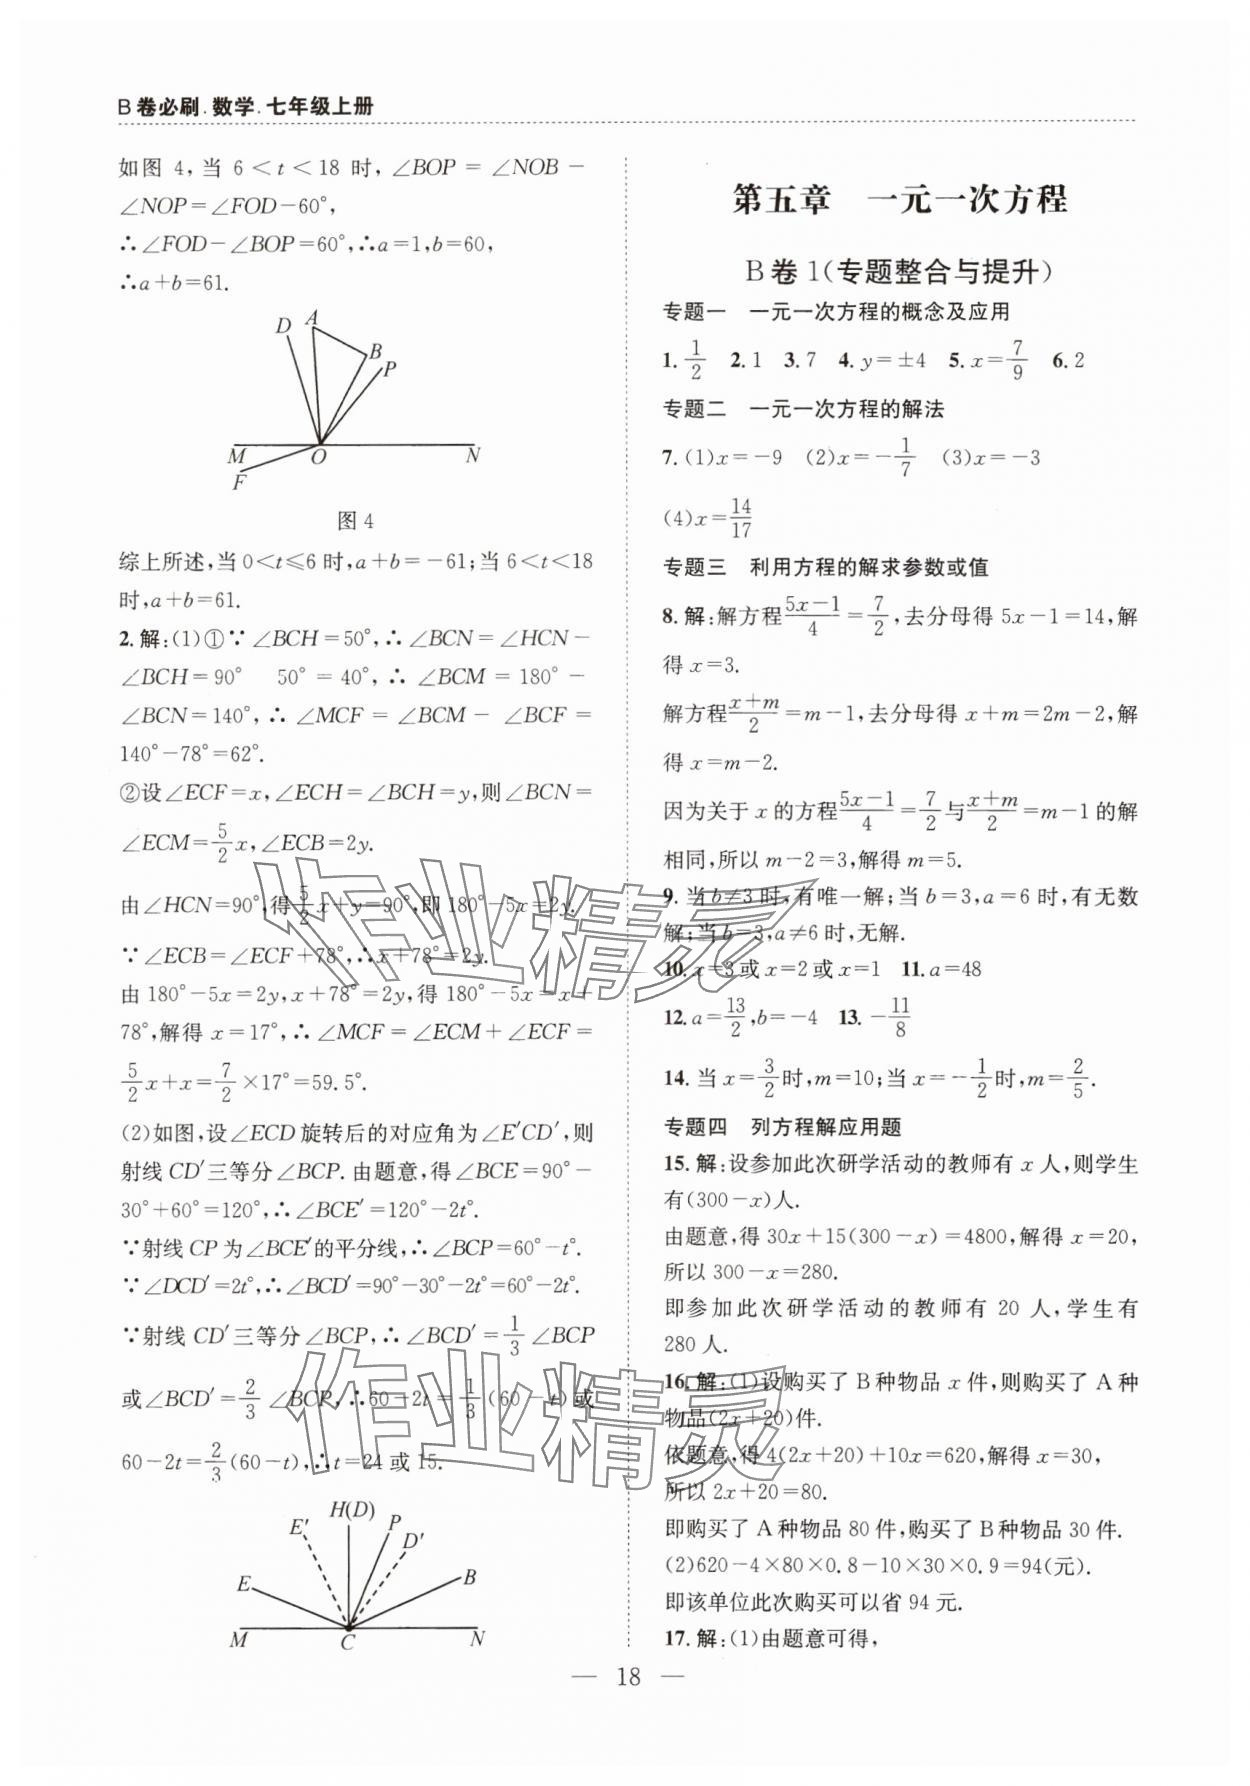 B卷必刷.数学.七年级上册
如图 4,当 6<t<18 时,∠BOP=∠NOB-
∠NOP=∠FOD-60°,
∴∠FOD-∠BOP=60°,∴a=1,b=60,
∴a+b=61.
D A B P M O N F
图 4
综上所述,当0<t≤6时,a+b=-61;当6<t<18
时,a+b=61.
2.解:(1)①∵∠BCH=50°,∴∠BCN=∠HCN-
∠BCH=90° 50°=40°,∴∠BCM=180°-
∠BCN=140°,∴∠MCF=∠BCM-∠BCF=
140°-78°=62°.
②设∠ECF=x,∠ECH=∠BCH=y,则∠BCN=
∠ECM=5/2x,∠ECB=2y.
由∠HCN=90°,得5/2x+y=90°,即180°-5x=2y.
∵∠ECB=∠ECF+78°,∴x+78°=2y.
由180°-5x=2y,x+78°=2y,得180°-5x=x+
78°,解得 x=17°,∴∠MCF=∠ECM+∠ECF=
5/2x+x=7/2×17°=59.5°.
(2)如图,设∠ECD旋转后的对应角为∠E′CD′,则
射线CD′三等分∠BCP.由题意,得∠BCE=90°-
30°+60°=120°,∴∠BCE′=120°-2t°.
∵射线CP为∠BCE′的平分线,∴∠BCP=60°-t°.
∵∠DCD′=2t°,∴∠BCD′=90°-30°-2t°=60°-2t°.
∵射线CD′三等分∠BCP,∴∠BCD′=1/3∠BCP
或∠BCD′=2/3∠BCP,∴60-2t=1/3(60-t)或
60-2t=2/3(60-t),∴t=24或15.
H(D) E′ P D′ E B M C N
第五章 一元一次方程
B卷1(专题整合与提升)
专题一 一元一次方程的概念及应用
1.1/2 2.1 3.7 4.y=±4 5.x=7/9 6.2
专题二 一元一次方程的解法
7.(1)x=-9 (2)x=-1/7 (3)x=-3
(4)x=14/17
专题三 利用方程的解求参数或值
8.解:解方程5x-1/4=7/2,去分母得5x-1=14,解
得 x=3.
解方程x+m/2=m-1,去分母得x+m=2m-2,解
得 x=m-2.
因为关于x的方程5x-1/4=7/2与x+m/2=m-1的解
相同,所以m-2=3,解得m=5.
9.当b≠3时,有唯一解;当b=3,a=6时,有无数
解;当b=3,a≠6时,无解.
10.x=3或x=2或x=1 11.a=48
12.a=13/2,b=-4 13.-11/8
14.当x=3/2时,m=10;当x=-1/2时,m=2/5.
专题四 列方程解应用题
15.解:设参加此次研学活动的教师有x人,则学生
有(300-x)人.
由题意,得30x+15(300-x)=4800,解得x=20,
所以300-x=280.
即参加此次研学活动的教师有20人,学生有
280人.
16.解:(1)设购买了B种物品x件,则购买了A种
物品(2x+20)件.
依题意,得4(2x+20)+10x=620,解得x=30,
所以2x+20=80.
即购买了A种物品80件,购买了B种物品30件.
(2)620-4×80×0.8-10×30×0.9=94(元).
即该单位此次购买可以省94元.
17.解:(1)由题意可得,
— 18 —
作业精灵
作业精灵